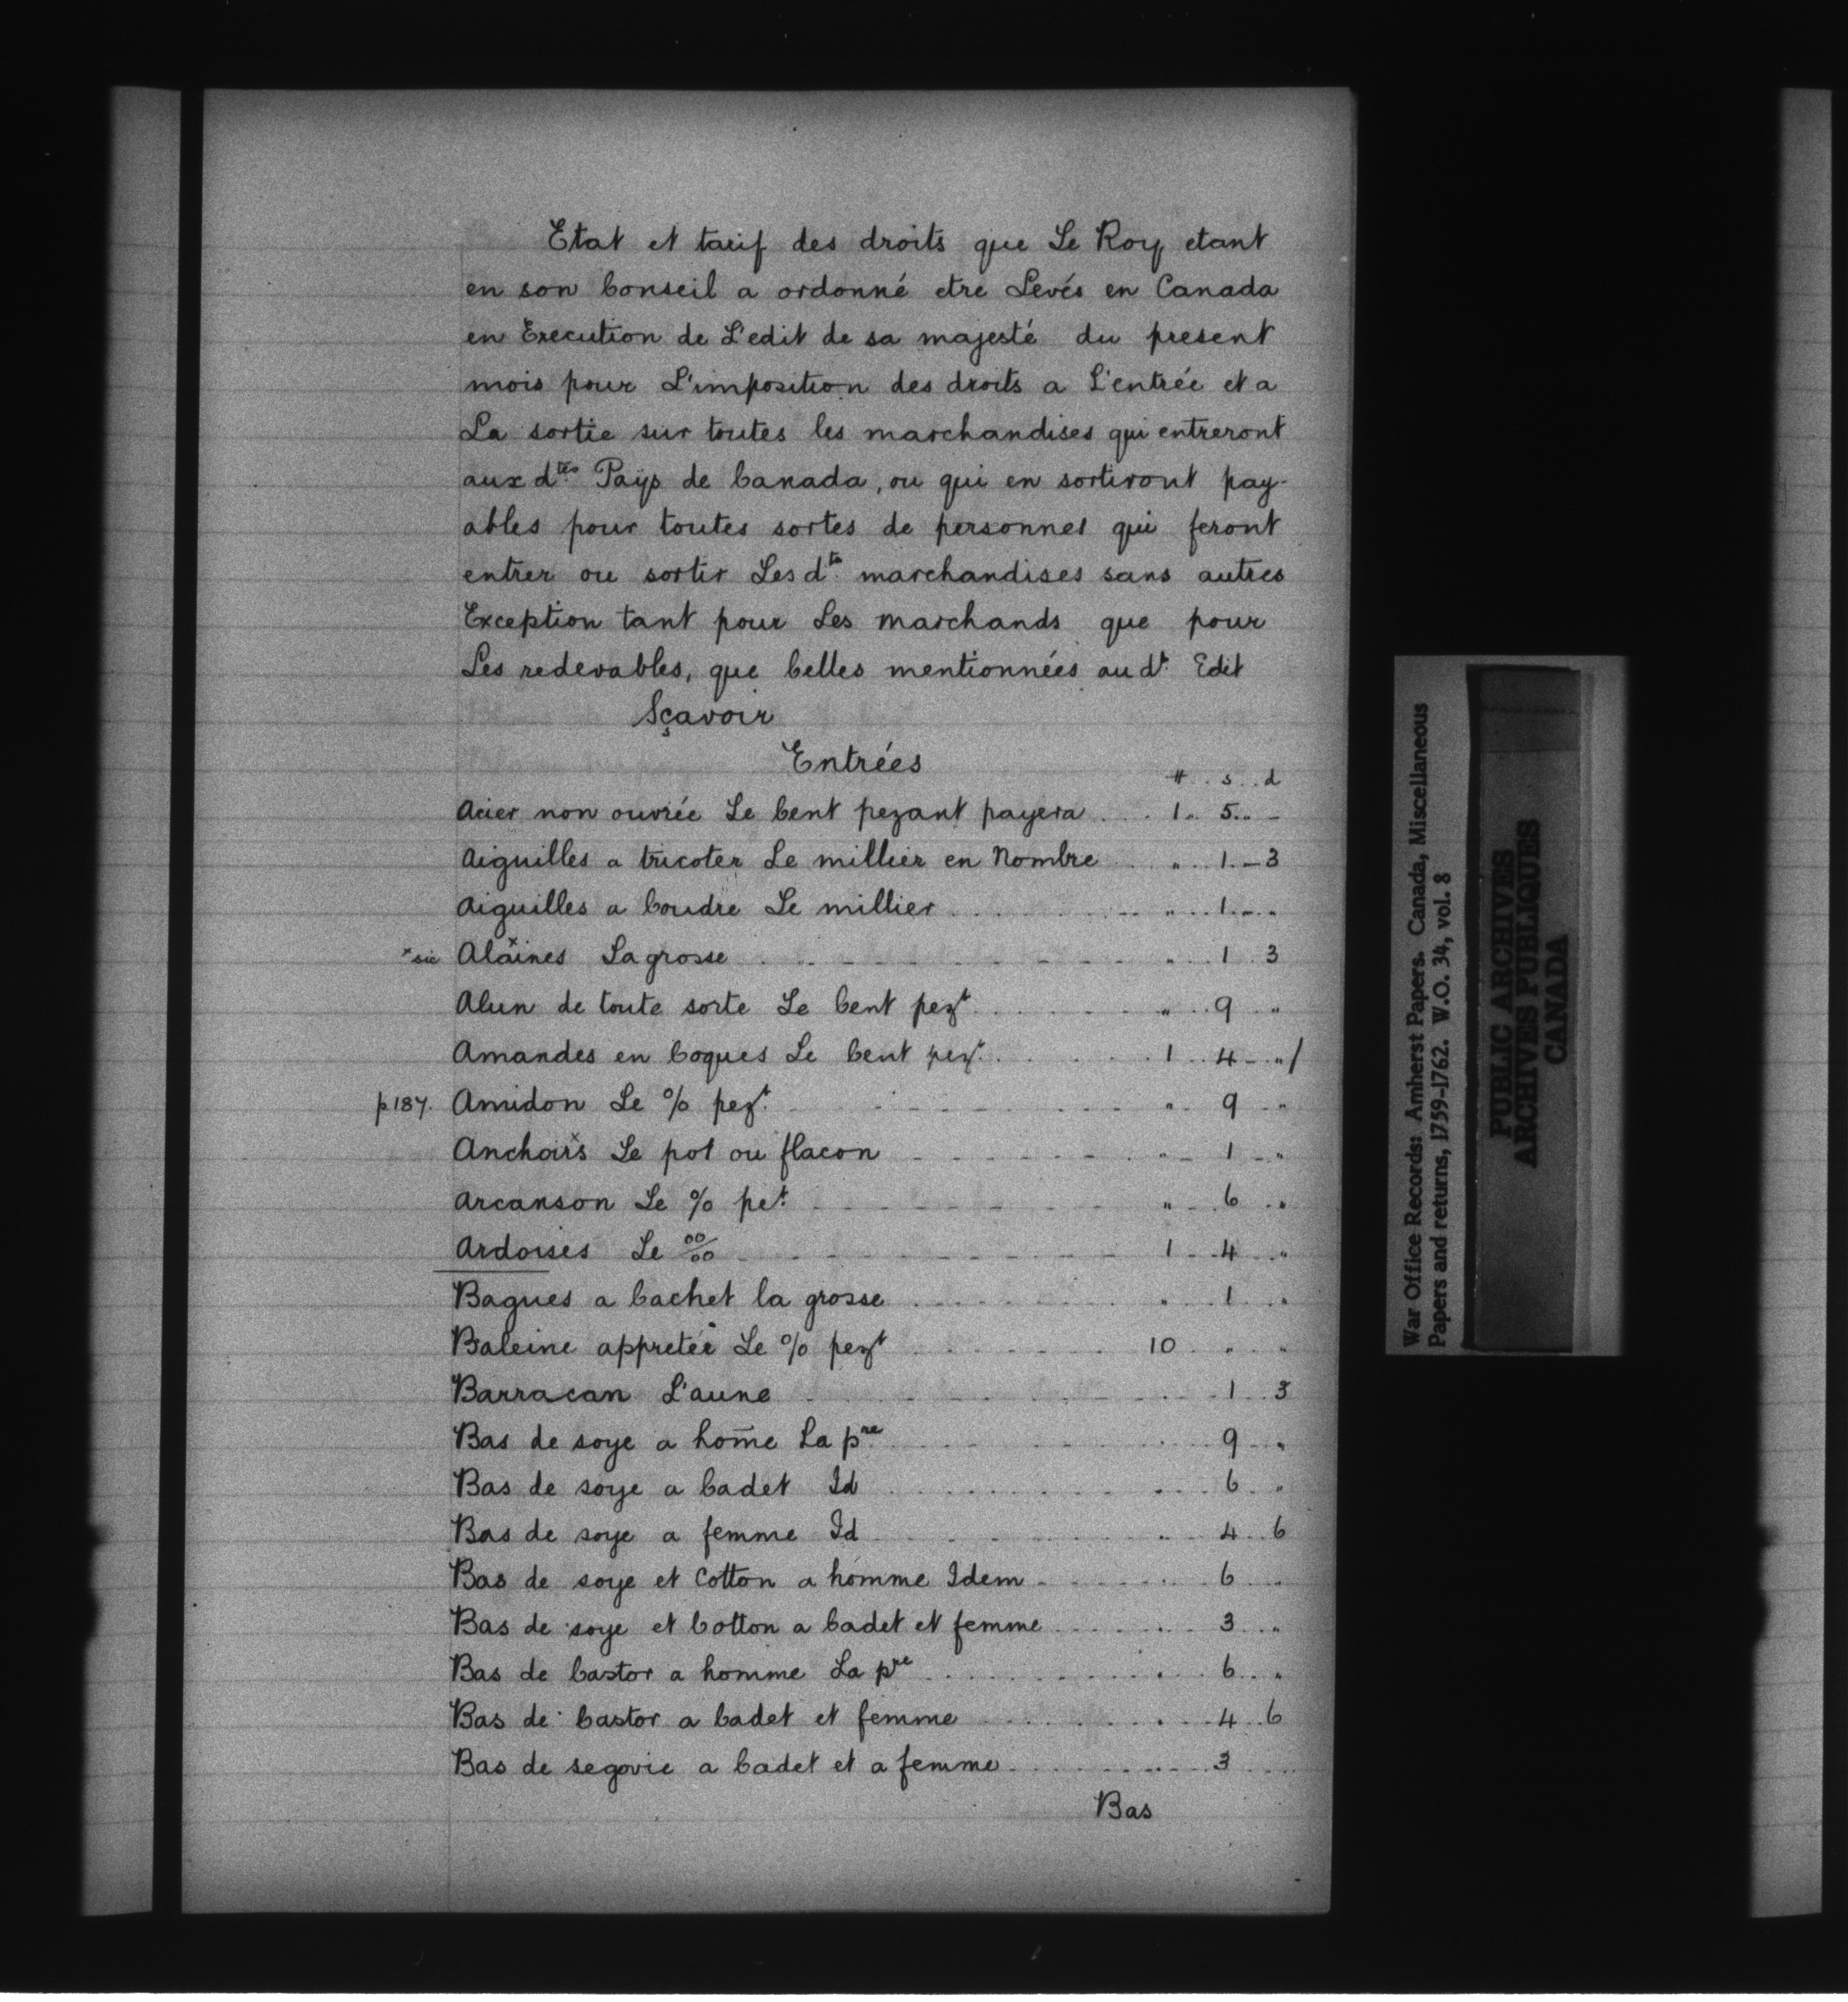 Etat et tarif des droits que Le Roy etant
en son Conseil a ordonné etre Levés en Canada
en Execution de L'edit de sa majesté du present
mois pour L'imposition des droits a L'entrée et a
La sortie sur toutes les marchandises qui entreront
aux dtes Pays de Canada, ou qui en sortiront pay-
ables pour toutes sortes de personnes qui feront
entrer ou sortir Les dts marchandises sans autres
Exception tant pour Les marchands que pour
Les redevables, que Celles mentionnées au dt Edit
Sçavoir
Entrées
# s d
Acier non ouvrée Le Cent pezant payera 1 5 -
Aiguilles a tricoter Le millier en Nombre " 1 3
Aiguilles a Coudre Le millier " 1 "
*sic Alaxines La grosse " 1 3
Alun de toute sorte Le Cent pezt " 9 "
Amandes en Coques Le Cent pezt 1 4 "/
p 187. Amidon Le % pezt " 9 "
Anchoixs Le pot ou flacon " 1 "
Arcanson Le % pet " 6 "
Ardoises Le 00/00 1 4 "
Bagues a Cachet la grosse " 1 "
Baleine appretée Le % pezt 10 " "
Barracan L'aune 1 3
Bas de soye a home La pre 9 "
Bas de soye a Cadet Id 6 "
Bas de soye a femme Id 4 6
Bas de soye et Cotton a homme Idem 6 "
Bas de soye et Cotton a Cadet et femme 3 "
Bas de Castor a homme La pre 6 "
Bas de Castor a Cadet et femme 4 6
Bas de segovie a Cadet et a femme 3
Bas
War Office Records: Amherst Papers. Canada, Miscellaneous
Papers and returns, 1759-1762. W.O. 34, vol. 8
PUBLIC ARCHIVES
ARCHIVES PUBLIQUES
CANADA